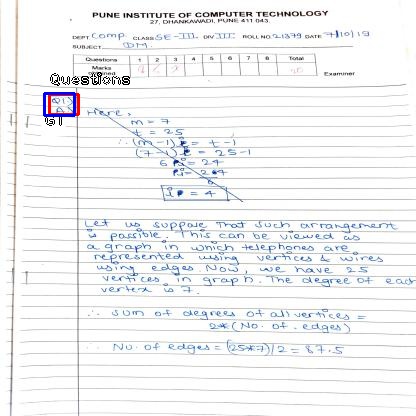 PUNE INSTITUTE OF COMPUTER TECHNOLOGY
27, DHANKAWADI, PUNE 411 043.
DEPT Comp. CLASS SE-III DIV III ROLL NO. 21379 DATE 7/10/19
SUBJECT DM
Questions 1 2 3 4 5 6 7 8 Total
Marks
Examiner
Questions
Q1)
A)
GT
Here,
m = 7
t = 25
∴ (m-1) = t-1
(7-1) = 25-1
6 = 24
= 24
6
= 4
Let us suppose that such arrangement
is possible. This can be viewed as
a graph in which telephones are
represented using vertices & wires
using edges. Now, we have 25
vertices in graph. The degree of each
vertex is 7.
∴ Sum of degrees of all vertices =
2*(No. of. edges)
∴ No. of edges = (25*7)/2 = 87.5